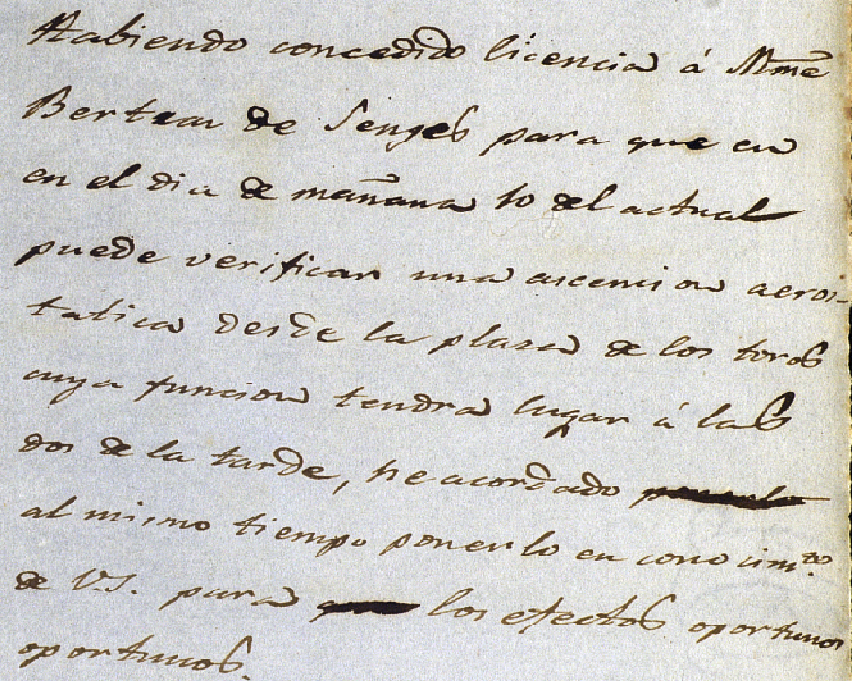 Habiendo concedido licencia á Mme
Berteau de Senges para que en
en el dia de mañana 10 del actual
puede verificar una ascencion aeros-
tatica desde la plaza de los toros
cuya funcion tendra lugar á las
dos de la tarde, he acordado ponerlo
al mismo tiempo ponerlo en conocim.to
de V.S. para que los efectos oportunos
oportunos.